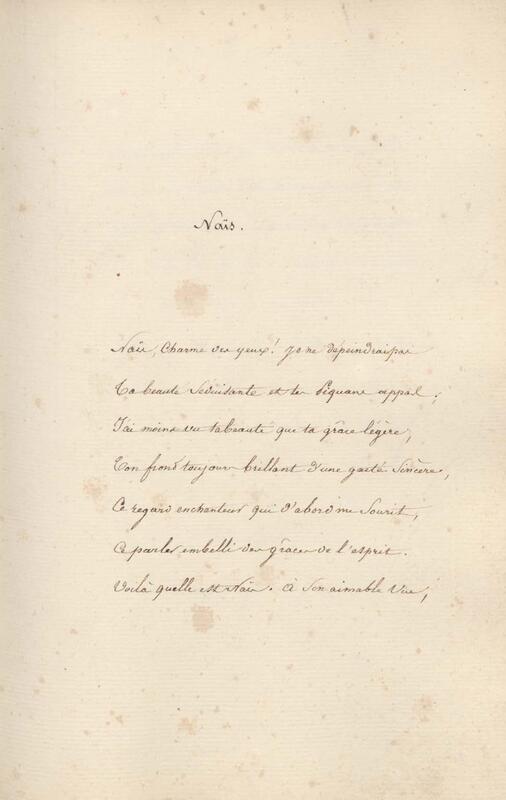 Naïs.
Naïs, Charme des yeux! je ne dépeindrai pas
Ta beauté Séduisante et tes piquans appas;
J'ai moins vu ta beauté que ta grâce légère,
Ton front toujours brillant d'une gaité Sincère,
Ce regard enchanteur qui d'abord me Sourit,
Ce parler embelli des grâces de l'esprit.
Voilà quelle est Naïs. à Son aimable Vue,